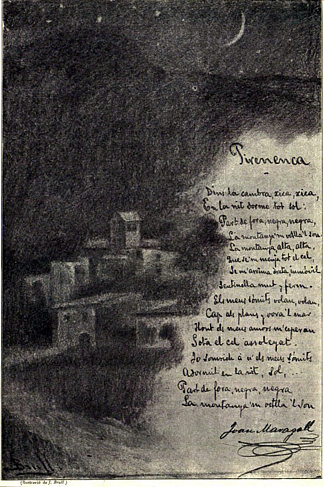 Pirenenca
Dins la cambra, xica, xica,
En la nit dormo tot sol:
Part de fora, negra, negra,
La montanya 'm vetlla 'l son.
La montanya, alta, alta,
Que se 'm menja tot el cel
Se m'arrima dreta, immòvil
Sentinella mut y ferm.
Els meus sòmits volan, volan,
Cap als plans y vora 'l mar
Hont els meus amors m'esperan
Sota el cel assoleyat.
Jo somrich a n' els meus sòmits
Adormit en la nit, sol.
Part de fora, negra, negra
La montanya 'm vetlla 'l són
Joan Maragall
(Ilustració de J. Brull)